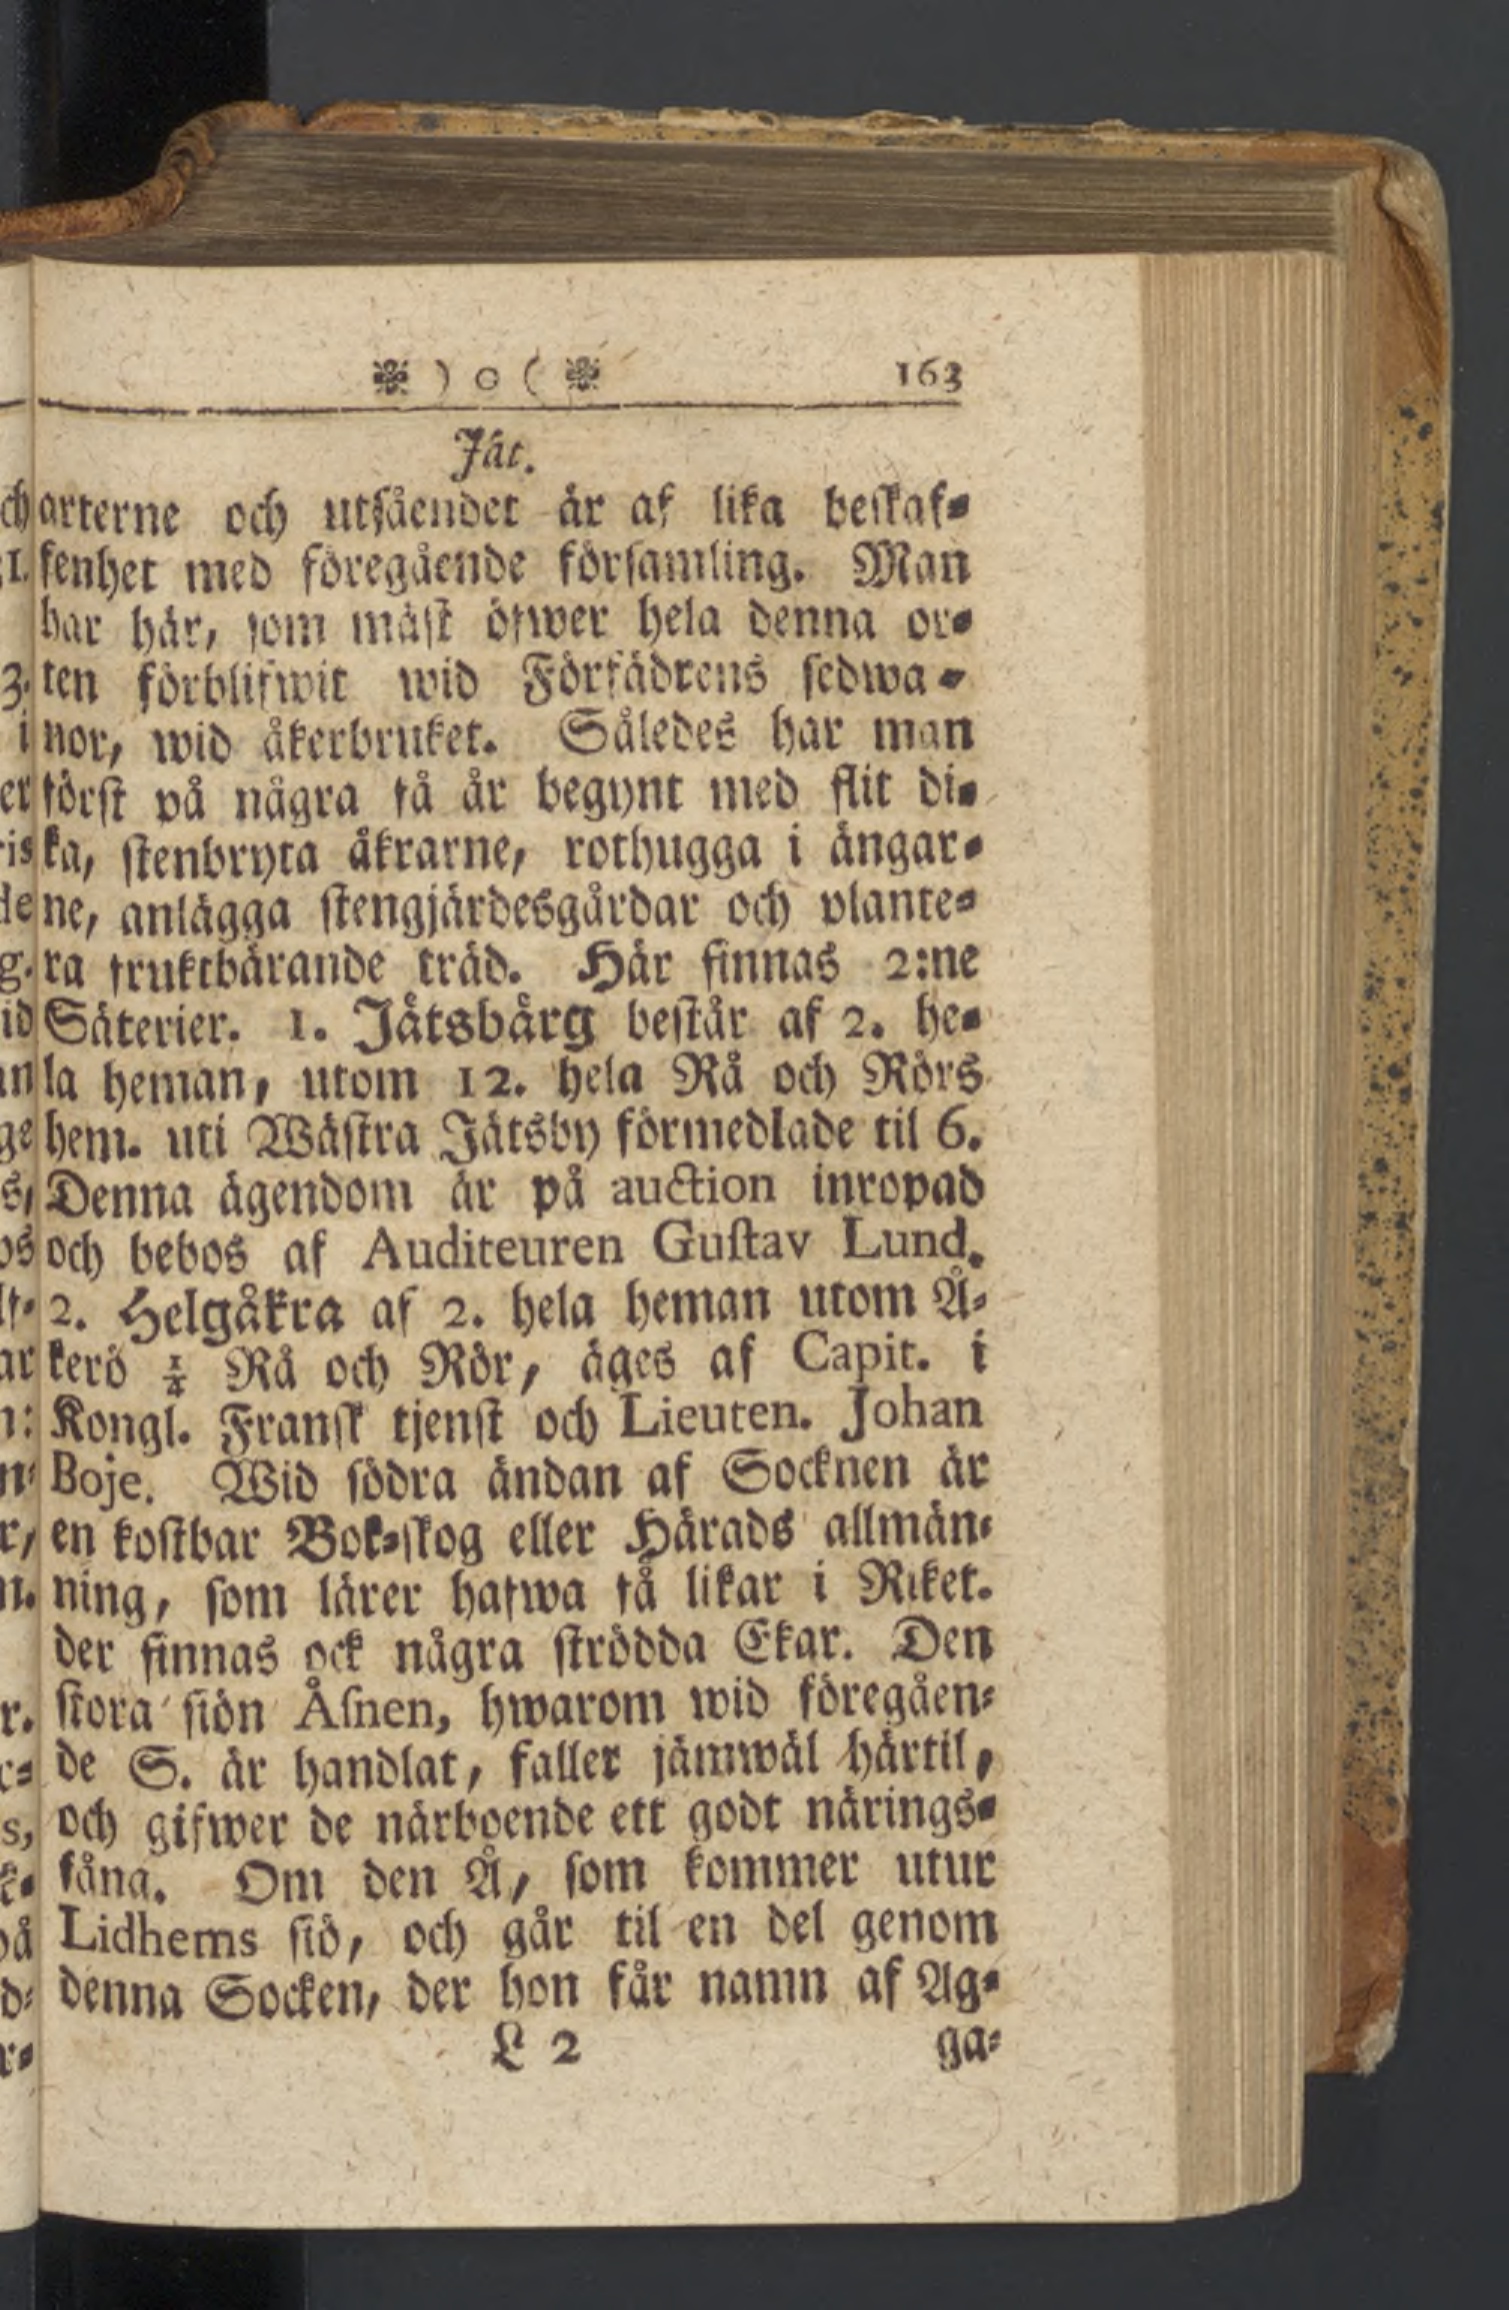 ❃ ) o ( ❃ 163
Jät.
arterne och utsåendet är af lika beskaf=
fenhet med föregående församling. Man
har här, som mäst öfwer hela denna or=
ten förblifwit wid Förfädrens sedwa=
nor, wid åkerbruket. Således har man
först på några få år begynt med flit di=
ka, stenbryta åkrarne, rothugga i ängar=
ne, anlägga stengjärdesgårdar och plante=
ra fruktbärande träd. Här finnas 2:ne
Säterier. 1. Jätsbärg består af 2. he=
la heman, utom 12. hela Rå och Rörs
hem. uti Wästra Jätsby förmedlade til 6.
Denna ägendom är på auction inropad
och bebos af Auditeuren Gustav Lund.
2. Helgåkra af 2. hela heman utom Å=
kerö 1/4 Rå och Rör, äges af Capit. i
Kongl. Fransk tjenst och Lieuten. Johan
Boje. Wid södra ändan af Socknen är
en kostbar Bok=skog eller Härads allmän=
ning, som lärer hafwa få likar i Riket.
der finnas ock några strödda Ekar. Den
stora siön Åsnen, hwarom wid föregåen=
de S. är handlat, faller jämwäl härtil,
och gifwer de närboende ett godt närings=
fång. Om den Å, som kommer utur
Lidhems siö, och går til en del genom
denna Socken, der hon får namn af Ag=
L 2 ga=